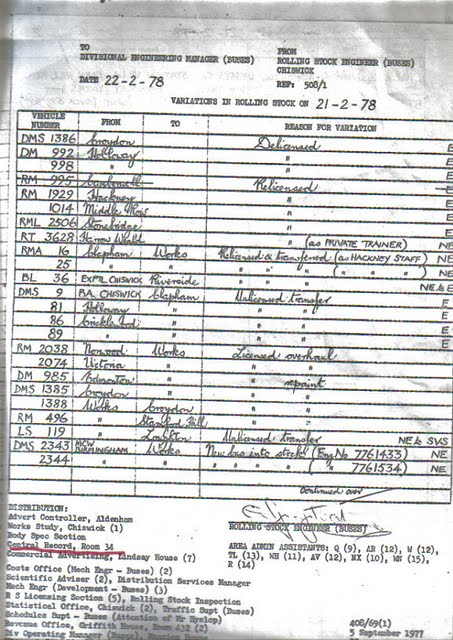 TO FROM
DIVISIONAL ENGINEERING MANAGER (BUSES) ROLLING STOCK ENGINEER (BUSES)
CHISWICK
DATE 22-2-78 REF: 508/1
VARIATIONS IN ROLLING STOCK ON 21-2-78
VEHICLE NUMBER FROM TO REASON FOR VARIATION
DMS 1386 Croydon Delicensed E
DM 992 Holloway " E
998 " " E
RM 995 Camberwell Relicensed E
RM 1929 Hackney " E
1014 Middle Row " E
RML 2506 Stonebridge " E
RT 3628 Harrow Weald " (as PRIVATE TRAINER) NE
RMA 16 Clapham Works Relicensed & transferred (as HACKNEY STAFF) NE
25 " " " " " ( " " ) NE
BL 36 EXPTL CHISWICK Riverside " " " NE & E
DMS 9 B.A. CHISWICK Clapham Unlicensed transfer E
81 Holloway " " " E
86 Cricklewood " " " E
89 " " " " E
RM 2038 Norwood Works Licensed overhaul E
2074 Victoria " " " E
DM 985 Edmonton " " repaint E
DMS 1385 Croydon " " " E
1388 Works Croydon " " E
RM 496 " Stamford Hill " " E
LS 119 " Loughton Unlicensed transfer NE & SVS
DMS 2343 MCW BIRMINGHAM Works New bus into stock (Eng No 7761433) NE
2344 " " " " " ( " 7761534) NE
Continued over
DISTRIBUTION:
Advert Controller, Aldenham
Works Study, Chiswick (1)
ROLLING STOCK ENGINEER (BUSES)
Body Spec Section
Central Record, Room 34
Commercial Advertising, Lindsay House (7)
AREA ADMIN ASSISTANTS: Q (9), AR (12), W (12),
TL (13), NH (11), AV (12), NX (10), WN (15),
R (14)
Costs Office (Mech Engr - Buses) (2)
Scientific Adviser (2), Distribution Services Manager
Mech Engr (Development - Buses) (3)
R S Licensing Section (5), Rolling Stock Inspection
Statistical Office, Chiswick (2), Traffic Supt (Buses)
Schedules Supt - Buses (Attention of Mr Hyslop)
Revenue Office, Griffith House, Room 432 (2)
Div Operating Manager (Buses),
408/69(1)
5 September 1977